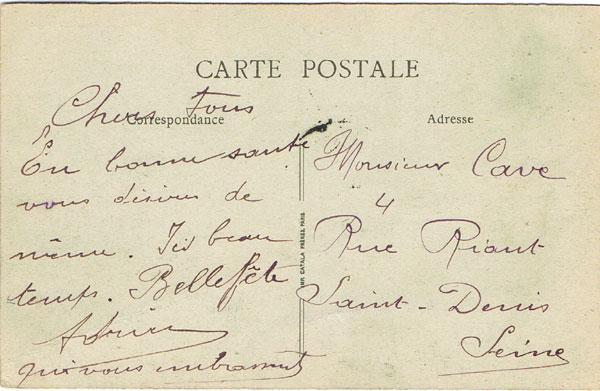 CARTE POSTALE
Correspondance
Adresse
Chers Tous
En bonne santé
vous désirons de
même. Ici beau
temps. Belle fête
qui vous embrassent
Monsieur Cave
4
Rue Riant
Saint-Denis
Seine
IMP. CATALA FRÈRES, PARIS